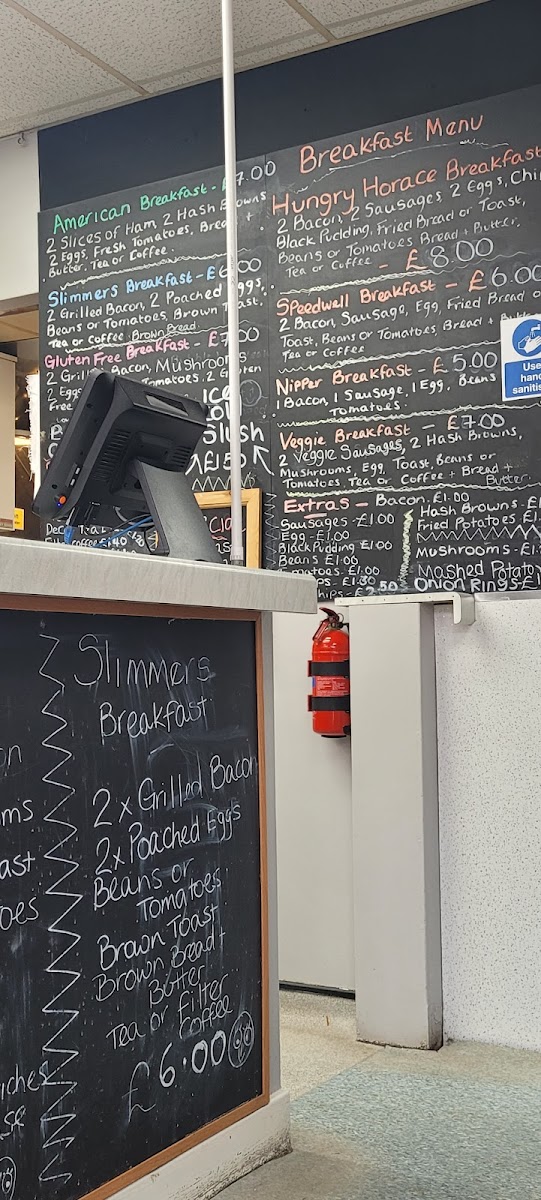 American Breakfast - £7.00
2 Slices of Ham 2 Hash Browns
2 Eggs, Fresh Tomatoes, Bread +
Butter. Tea or Coffee.
Slimmers Breakfast - £6.00
2 Grilled Bacon, 2 Poached Eggs,
Beans or Tomatoes, Brown Toast.
Tea or Coffee Brown Bread.
Gluten Free Breakfast - £7.00
2 Grilled Bacon, Mushrooms
2 Eggs Tomatoes. 2 Gluten
Free
Slush
£1.50
Breakfast Menu
Hungry Horace Breakfast
2 Bacon, 2 Sausages 2 Eggs, Chi
Black Pudding, Fried Bread or Toast,
Beans or Tomatoes Bread + Butter.
Tea or Coffee - £8.00
Speedwell Breakfast - £6.00
2 Bacon, Sausage, Egg, Fried Bread o
Toast, Beans or Tomatoes Bread +
Tea or Coffee
Nipper Breakfast - £5.00
1 Bacon, 1 Sausage, 1 Egg, Beans
Tomatoes.
Veggie Breakfast - £7.00
2 Veggie Sausages, 2 Hash Browns,
Mushrooms, Egg, Toast, Beans or
Tomatoes Tea or Coffee + Bread +
Butter.
Extras - Bacon £1.00
Sausages - £1.00
Egg - £1.00
Black Pudding £1.00
Beans £1.00
Tomatoes £1.00
Hash Browns - £1
Fried Potatoes £1
Mushrooms - £1.
Mashed Potato
Onion Rings - £1
Use
han
sanitis
Slimmers
Breakfast
2 x Grilled Bacon
2x Poached Eggs
Beans or
Tomatoes
Brown Toast
Brown Bread +
Butter
Tea or Filter
Coffee
£6.00
on
ms
ast
oes
iches
se